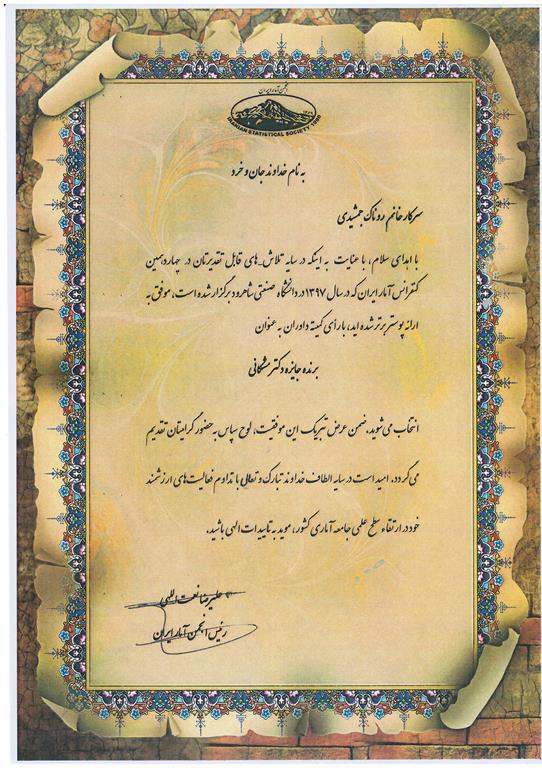 انجمن آمار ایران
IRANIAN STATISTICAL SOCIETY
به نام خداوند جان و خرد
سرکار خانم روناک جمشیدی
با اهدای سلام، با عنایت به اینکه در سایه تلاش های قابل تقدیرتان در چهاردهمین
کنفرانس آمار ایران که در سال ۱۳۹۷ در دانشگاه صنعتی شاهرود برگزار شده است، موفق به
ارائه پوستر برتر شده اید، با رأی کمیته داوران به عنوان
برنده جایزه دکتر مشکانی
انتخاب می شوید. ضمن عرض تبریک این موفقیت، لوح سپاس به حضور گرامیتان تقدیم
می گردد. امید است در سایه الطاف خداوند تبارک و تعالی با تداوم فعالیت های ارزشمند
خود در ارتقاء سطح علمی جامعه آماری کشور، موید به تاییدات الهی باشید.
علیرضا نعمت اللهی
رئیس انجمن آمار ایران